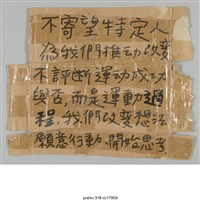 不寄望特定人
為我們推動改變
不評斷運動成功
與否,而是運動過
程,我們改變想法
願意行動、開始思考
public.318.io/17959